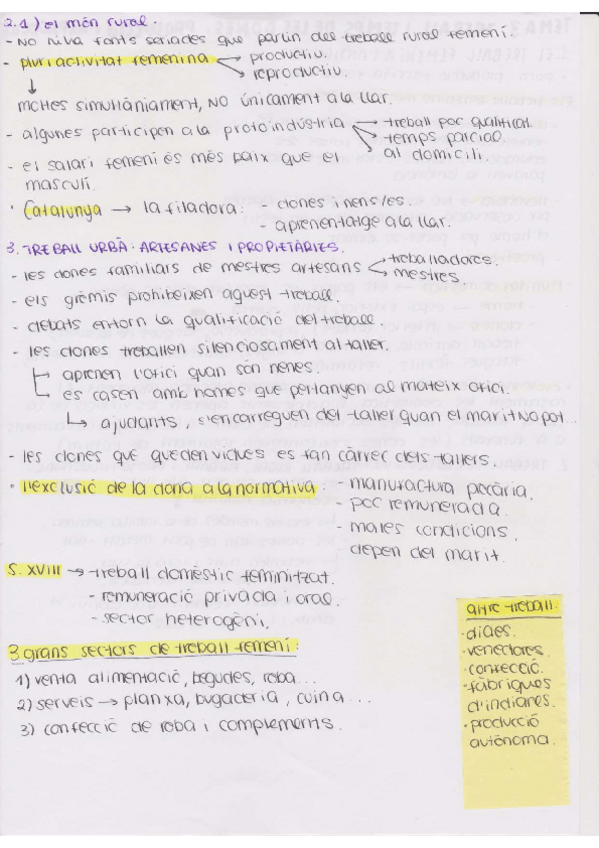 2.1) el món rural.
- No hi ha fonts seriades que parlin del treball rural femení.
- pluriactivitat femenina → productiu.
→ reproductiu.
↓
moltes simultàniament, NO únicament a la llar.
- algunes participen a la protoindústria → treball poc qualificat.
→ temps parcial
→ al domicili.
- el salari femení és més baix que el
masculí.
· Catalunya → la filadora: - dones i nens/es.
- aprenentatge a la llar.
3. TREBALL URBÀ: ARTESANES I PROPIETÀRIES.
- les dones familiars de mestres artesans → treballadores.
→ mestres.
- els grèmis prohibeixen aquest treball.
- debats entorn la qualificació del treball.
- les dones treballen silenciosament al taller.
→ aprenen l'ofici quan són nenes.
→ es casen amb homes que pertanyen al mateix ofici.
→ ajudants, s'encarreguen del taller quan el marit NO pot...
- les dones que queden vídues es fan càrrec dels tallers.
· l'exclusió de la dona de la normativa: - manufactura precària.
- poc remunerada.
- males condicions.
- depen del marit.
S. XVIII → treball domèstic feminitzat.
- remuneració privada i oral.
- sector heterogèni.
3 grans sectors de treball femení:
1) venta alimentació, begudes, roba...
2) serveis → planxa, bugaderia, cuina...
3) confecció de roba i complements.
altre treball:
· dides.
· venedores.
· confecció.
· fàbriques
d'indianes.
· producció
autònoma.